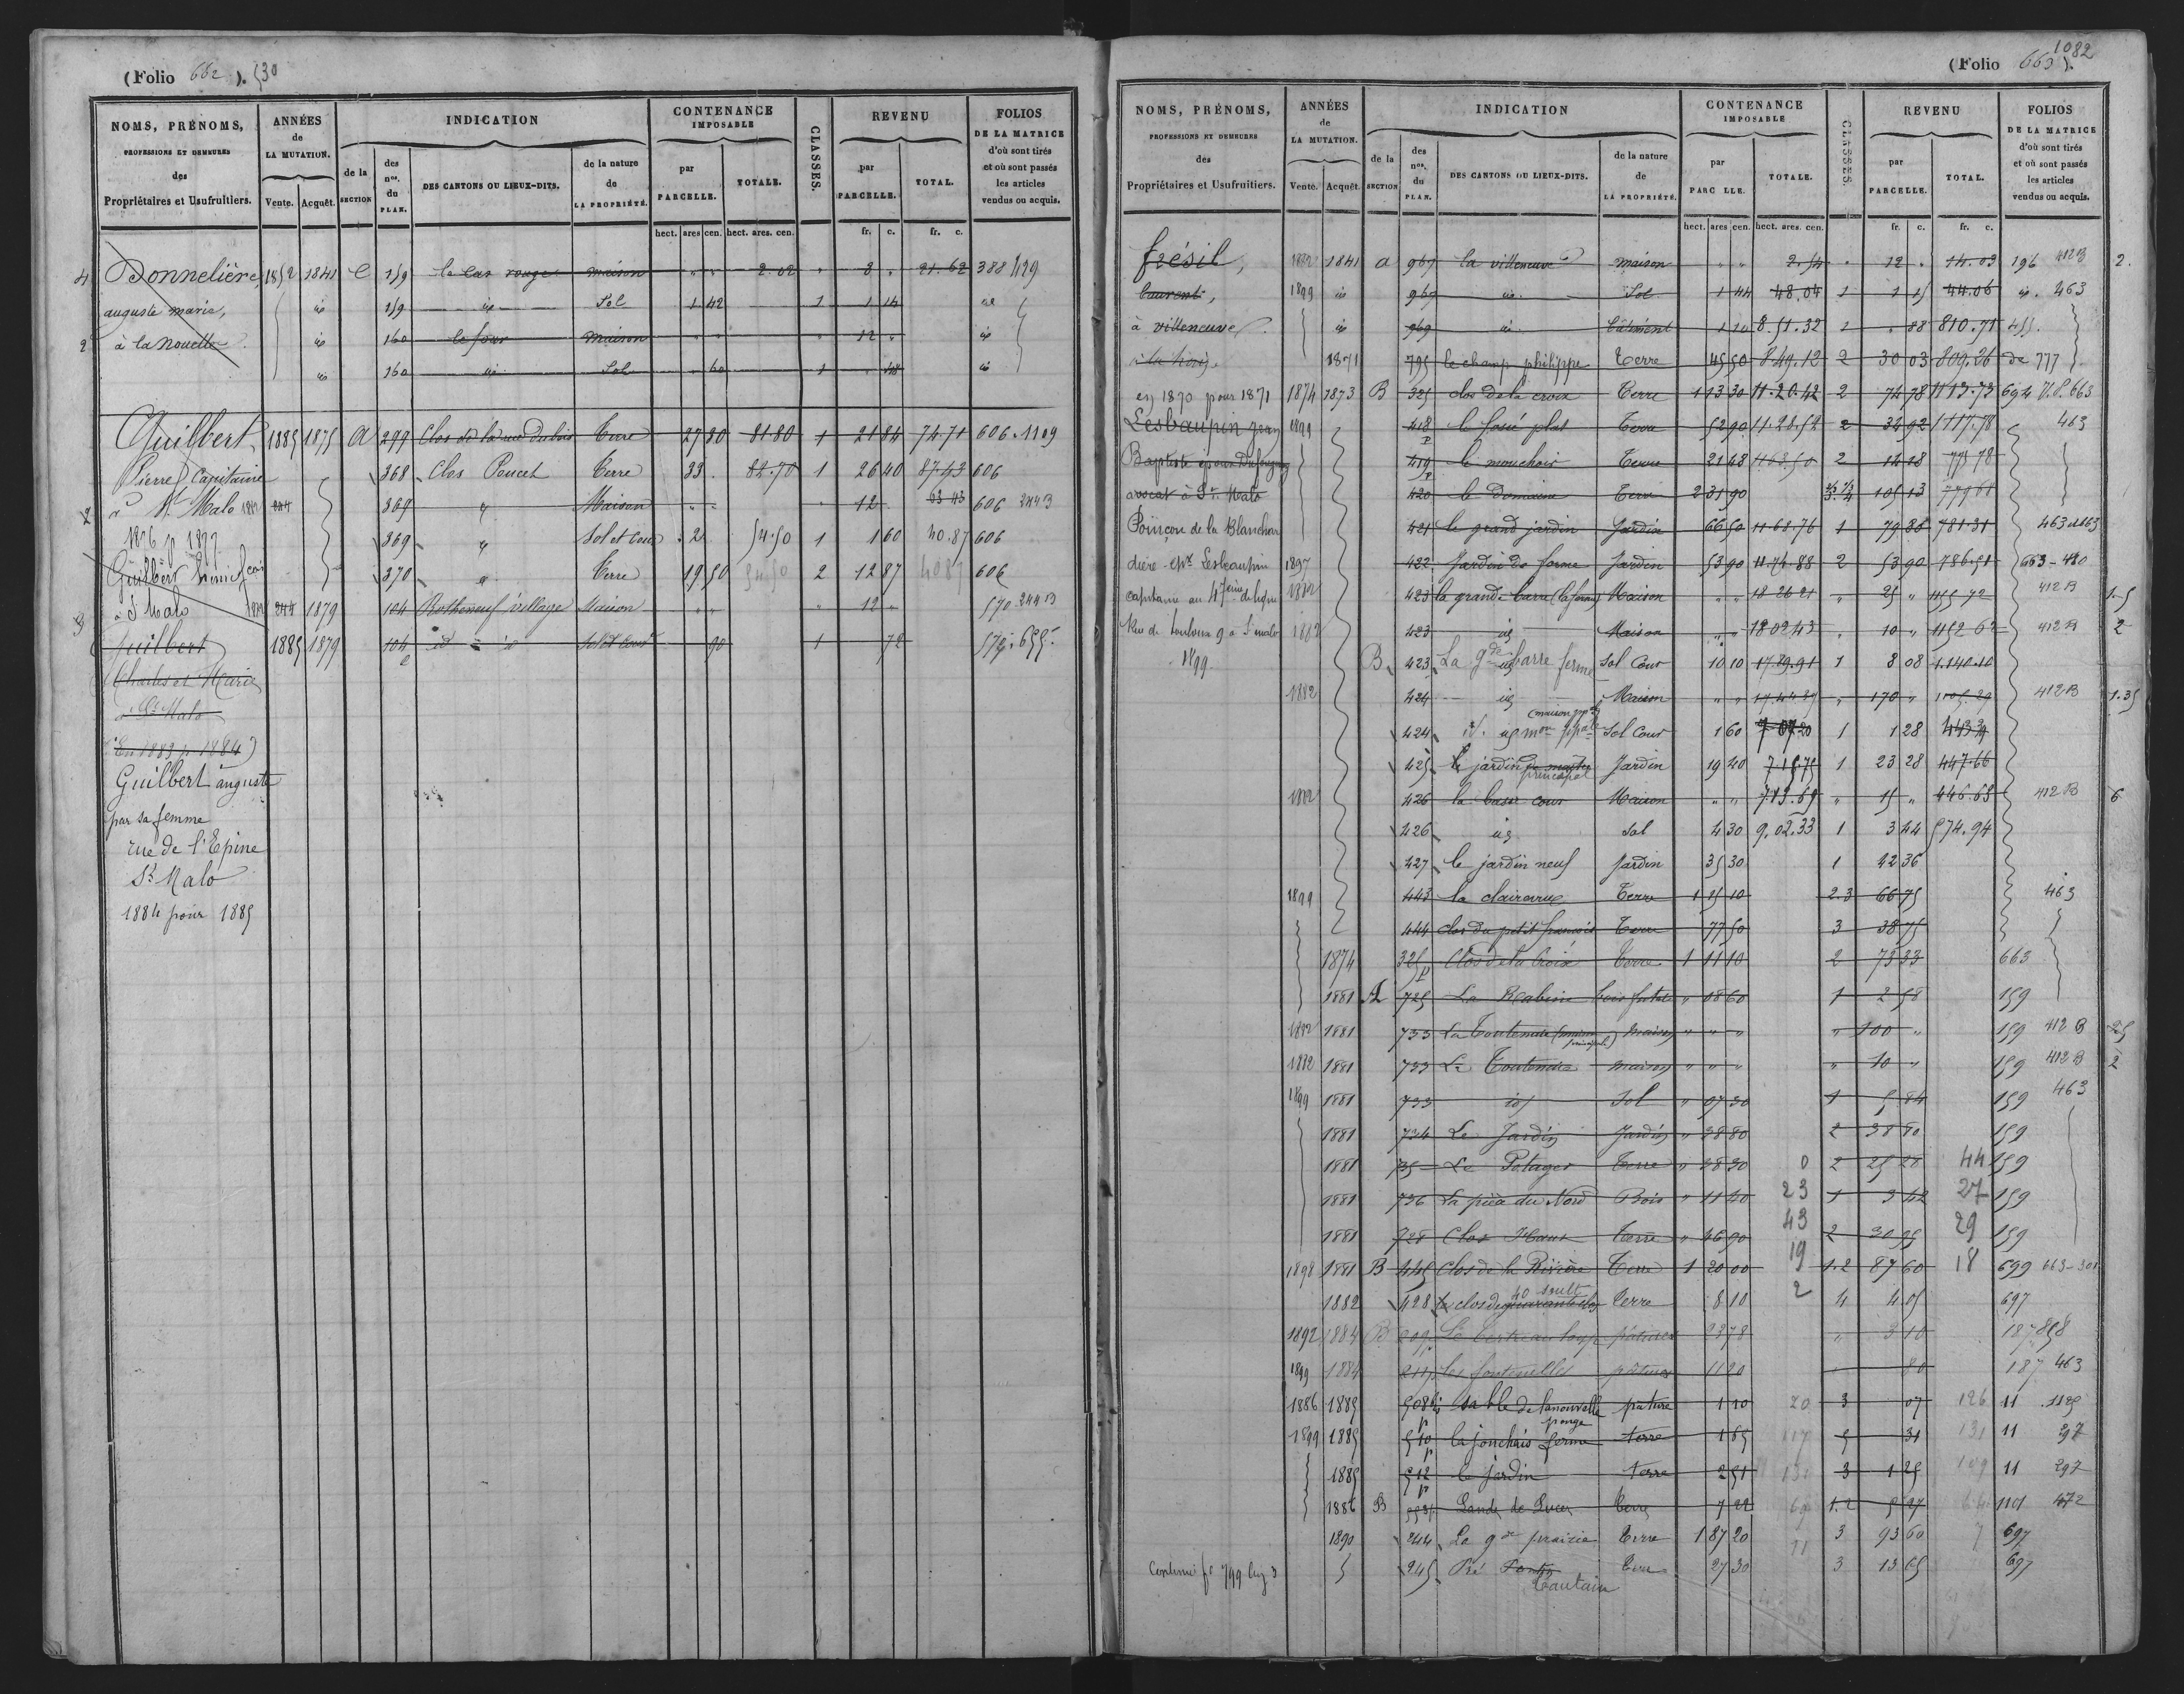 (Folio 662). 530
NOMS, PRÉNOMS, PROFESSIONS ET DEMEURES des Propriétaires et Usufruitiers.
ANNÉES de LA MUTATION. Vente. Acquêt.
INDICATION
de la SECTION
des nos. du PLAN.
DES CANTONS OU LIEUX-DITS.
de la nature de LA PROPRIÉTÉ.
CONTENANCE IMPOSABLE
par PARCELLE. TOTALE.
CLASSES.
REVENU
par PARCELLE. TOTAL.
FOLIOS DE LA MATRICE d'où sont tirés et où sont passés les articles vendus ou acquis.
hect. ares cen. hect. ares. cen. fr. c. fr. c.
4 Donnelière, 1852 1841 C 159 le cas rouge maison " " 2.02 " 8 " 21.62 388
auguste marie, id 159 id Sol 1 42 1 1 14 id
2 à la nouette id 160 le four maison " " " 12 " id
id 160 id Sol " 60 1 " 48 id
Guilbert 1885 1875 A 299 Clos de la rue du bois Terre 27 30 81 80 1 21 84 74.71 606.1109
Pierre Capitaine 368 Clos Poucet Terre 33 . 82.70 1 26 40 87.43 606
à St Malo 1882 369 " Maison " " " 12 63 43 606 244 B
1876 p 1877 369 " Sol et Cour 2 54.50 1 1 60 40.87 606
Guilbert 370 " Terre 19 50 54 50 2 12 87 40 87 606
à St Malo 1882 1879 104 Rotheneuf village Maison " " " 12 " 570 244 B
Guilbert 1885 1879 104 id id Sol et Cour 90 1 72 570.655
Charles et Marie
à St Malo
(En 1883 p 1884)
Guilbert auguste
par sa femme
rue de l'Epine
St Malo
1884 pour 1885
1082
(Folio 663).
NOMS, PRÉNOMS, PROFESSIONS ET DEMEURES des Propriétaires et Usufruitiers.
ANNÉES de LA MUTATION. Vente. Acquêt.
INDICATION
de la SECTION
des nos. du PLAN.
DES CANTONS OU LIEUX-DITS.
de la nature de LA PROPRIÉTÉ.
CONTENANCE IMPOSABLE
par PARCELLE. TOTALE.
CLASSES.
REVENU
par PARCELLE. TOTAL.
FOLIOS DE LA MATRICE d'où sont tirés et où sont passés les articles vendus ou acquis.
hect. ares cen. hect. ares. cen. fr. c. fr. c.
frésil, 1882 1841 a 969 la villeneuve maison " " 2.54 " 12 . 14.03 196 412 B 2.
Laurent, 1899 id 969 id Sol 1 44 48.04 1 1 15 44.06 id. 463
à villeneuve id 969 id bâtiment 1 10 8.51.32 1 " 88 810.71 455
1871 795 le champ philippe Terre 45 50 8.49.12 2 30 03 809.26 de 777
en 1870 pour 1871 1874 1873 B 325 clos de la croix Terre 1 13 30 11.20.42 2 74 78 1113.73 694 663
Lesbaupin Jean 1899 418 p le fossé plat Terre 52 90 11.28.52 2 34 92 1117.78 463
Baptiste époux 419 p le mouchoir Terre 21 48 1163.50 2 14 18 775 78
avocat à St Malo 420 le Domaine Terre 2 31 90 105 13 779 61
Poinçon de la Blanchar 421 le grand jardin Jardin 66 50 11.68.76 1 79 80 781.31 463
dière Lesbaupin 1897 422 Jardin de ferme Jardin 53 90 11.74.88 2 53 90 786.51 663-480
capitaine au 47ème de ligne 1882 423 la grande barre (la ferme) Maison " " 18 26 21 " 25 " 1155 72 412 B
Rue de Toulouse 9 à St malo 1882 423 id Maison " " 18 02 43 " 10 " 1152 62 412 B 2
1899 B 423 La gde barre ferme Sol Cour 10 10 17.89.91 1 8 08 1.140.10
1882 424 id Maison " " 17.44.27 " 170 " 412 B 1.35
424 id Sol Cour 1 60 7 07 20 1 1 28 443 39
425 le jardin principal Jardin 19 40 7 15 75 1 23 28 447.66
1882 426 la basse cour Maison " " 7.13.69 " 15 " 446.68 412 B 6
426 id Sol 4 30 9.02.33 1 3 44 574.94
427 le jardin neuf Jardin 35 30 1 42 36
1899 443 la clairevue Terre 1 15 10 2.3 66 75 463
444 clos du petit françois Terre 77 50 3 38 75
1874 325 p Clos de la Croix Terre 1 11 10 2 73 33 663
1881 A 725 La Rabine bois futaie " 08 60 1 2 58 159
1882 1881 733 La Toutenaie (maison principale) Maison " " " " 100 " 159 412 B 25
1882 1881 733 La Toutenaie maison " " " " 10 " 159 412 B 2
1899 1881 733 id Sol " 07 30 1 5 84 159 463
1881 734 Le Jardin Jardin " 38 80 2 38 80 159
1881 735 Le Potager Terre " 28 30 0 2 25 20 44 159
1881 736 La pièce du Nord Bois " 11 40 23 1 3 42 27 159
1881 728 Clos Haut Terre " 46 90 43 2 30 95 29 159
1898 1881 B 445 Clos de la Rivière Terre 1 20 00 19 1.2 87 60 18 699 663-301
1882 428 le clos de 40 Terre 8 10 2 4 4 05 697
1892 1884 B pâture 23 78 " 3 10 187 858
1899 1884 211 p les fontenelles pâture 11 20 80 187 463
1886 1885 508 p sable de la nouvelle pâture 1 10 20 3 07 126 11 1125
1899 1885 510 p la jonchais ferme terre 1 65 117 5 31 131 11 297
1885 512 p le jardin terre 2 51 131 3 1 25 109 11 297
1886 B Lande de Lucet Terre 7 22 69 1.2 5 27 1101 472
1890 244 La gde prairie Terre 1 87 20 11 3 93 60 7 697
Continué fo 799 245 Pré Tautain Terre 27 30 3 13 65 697